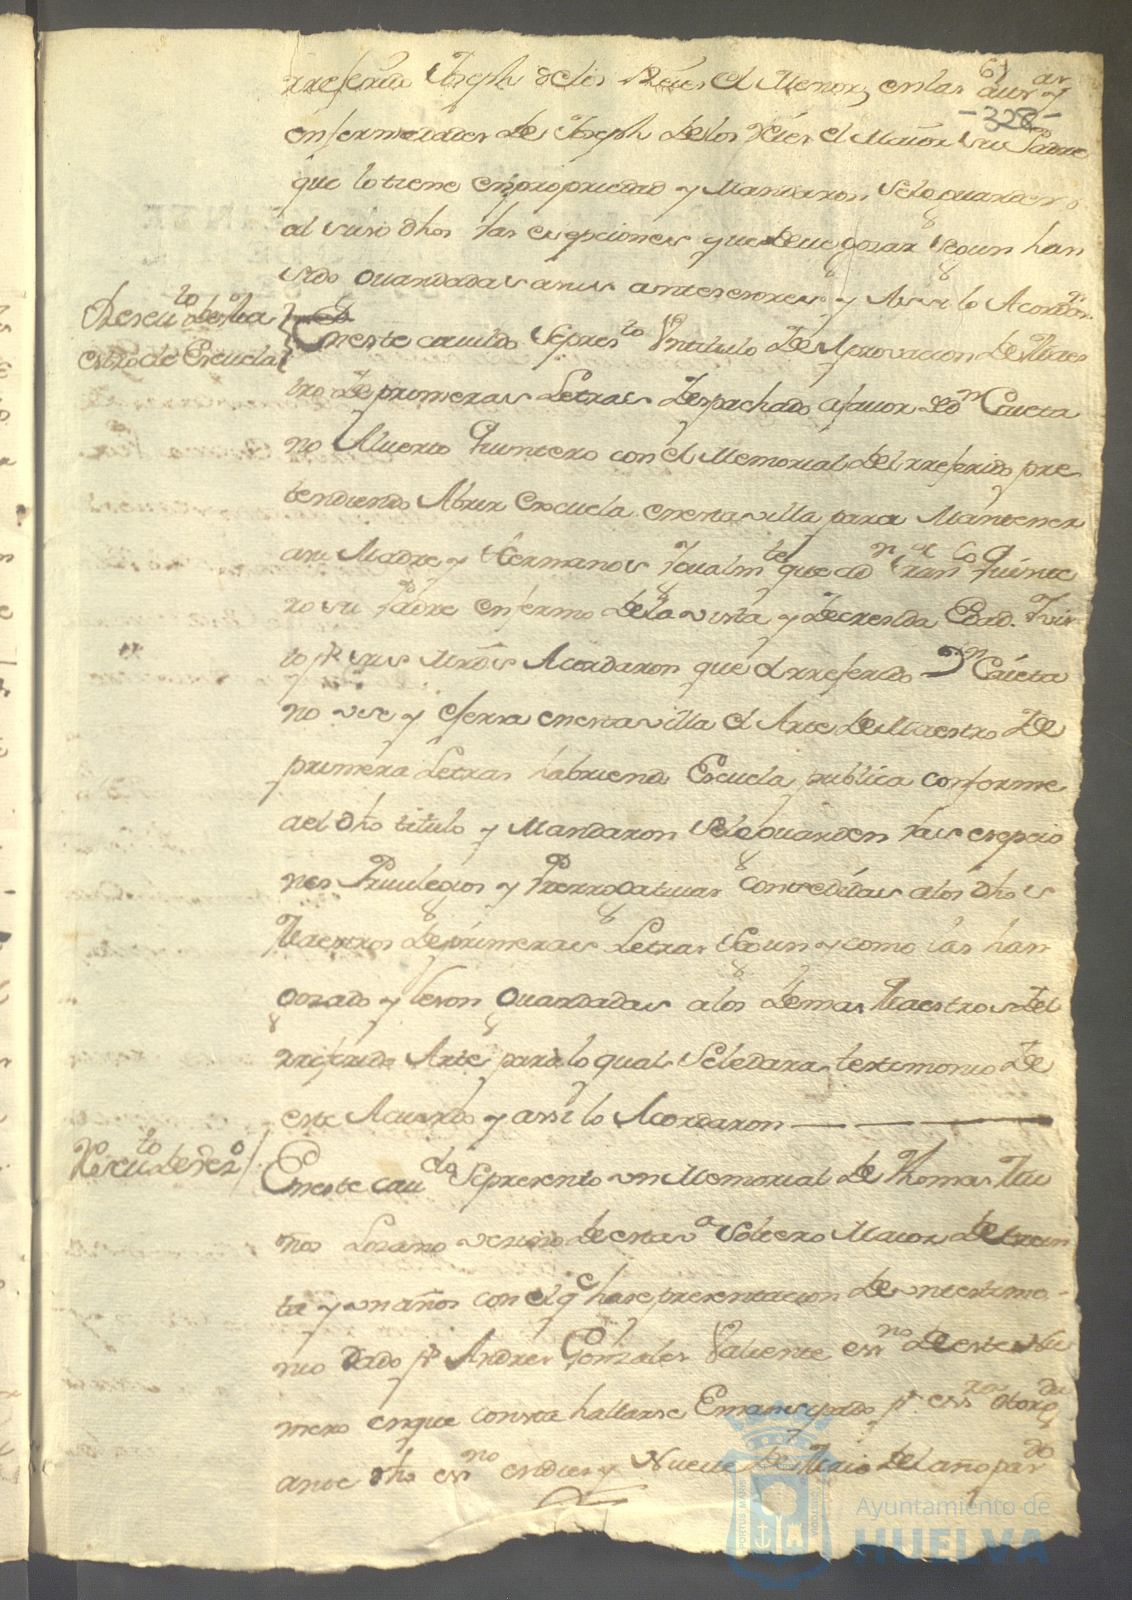 61
328
rreferido Joseph de los Reies el Menor, en las aus.as y
enfermedades de Joseph de los Reies el Maior su Padre
que lo tiene en propriedad y Mandaron se le guarden
al suso dho las esepciones que deue gosar segun han
sido guardadas a sus antesesores y Assi lo Acordaron
Reseuto de Ma
estro de Escuela
En este cauildo se presto Vn titulo de Aprovacion de Maes
tro de primeras Letras despachado a fauor de Dn Caieta
no Alverto Quintero con el Memorial del rreferido pre
tendiendo Abrir escuela en esta villa para Mantener
a su Madre y Hermanos Igualmte que a dn Franco Quinte
ro su Padre enfermo de la vista y de cresida Edad. Vis
to pr sus Mrds Acordaron que el rreferido Dn Caieta
no use y esersa en esta villa el Arte de Maestro de
primera Letras habriendo Escuela publica conforme
a el dho titulo y Mandaron se le guarden las esepcio
nes Priuilegios y Prerrogatiuas consedidas a los dhos
Maestros de primeras Letras segun y como las han
gozado y sido guardadas a los demas Maestros del
rreferido Arte para lo qual se le dara testimonio de
este Acuerdo y assi lo Acordaron
Reseuto de Veno
En este caudo se presento un Memorial de Thomas Mu
ños Losano vesino de esta va soltero Maior de trein
ta y un años con el qe hase presentacion de un testimo-
nio dado pr Andres Gonzales Valiente essno de este Nu
mero en que consta hallarse Emansipado pr essra otorgda
ante dho essno en dies y Nueue de Maio del año pasdo
Ayuntamiento de
HUELVA